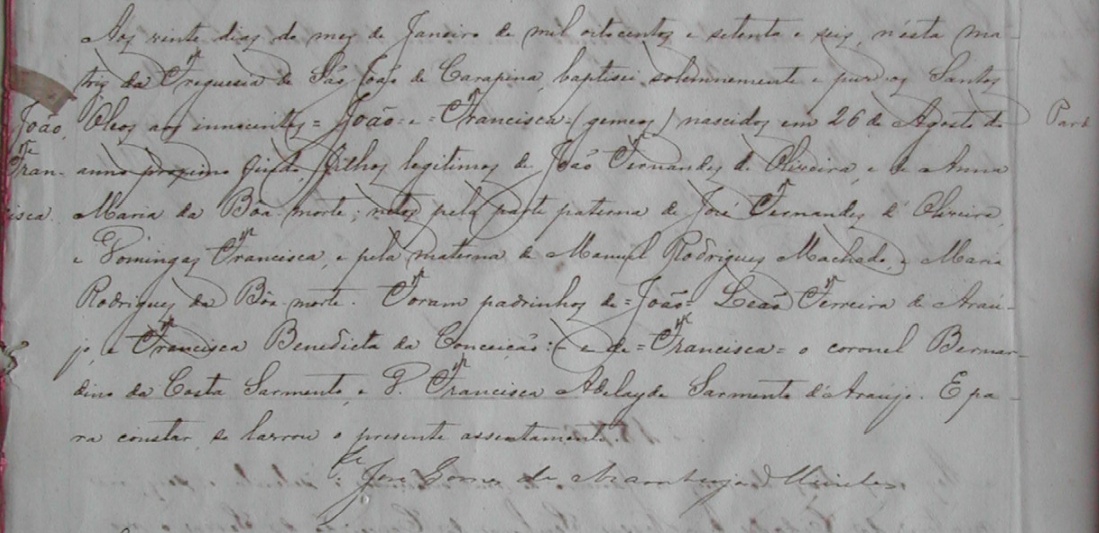 Aos vinte dias do mez de Janeiro de mil oitocentos e setenta e seis, n'ésta ma-
triz da Freguesia de São João de Carapina, baptisei solemnemente e puz os Santos
João, Oleos aos innocentes = João = e = Francisca = (gemeos) nascidos em 26 de Agosto do
Fran- anno proximo findo, filhos legitimos de João Fernandes de Oliveira, e de Anna
cisca. Maria da Bôa morte; netos pela parte paterna de José Fernandes d'Oliveira,
e Domingas Francisca, e pela materna de Manuel Rodrigues Machado, e Maria
Rodrigues da Bôa morte. Foram padrinhos de = João = Leão Ferreira de Arau-
jo, e Francisca Benedicta da Conceição: - e de = Francisca = o coronel Bernar-
dino da Costa Sarmento, e D. Francisca Adelayde Sarmento d'Araujo. E pa-
ra constar se lavrou o presente assentamento.
José Gomes de